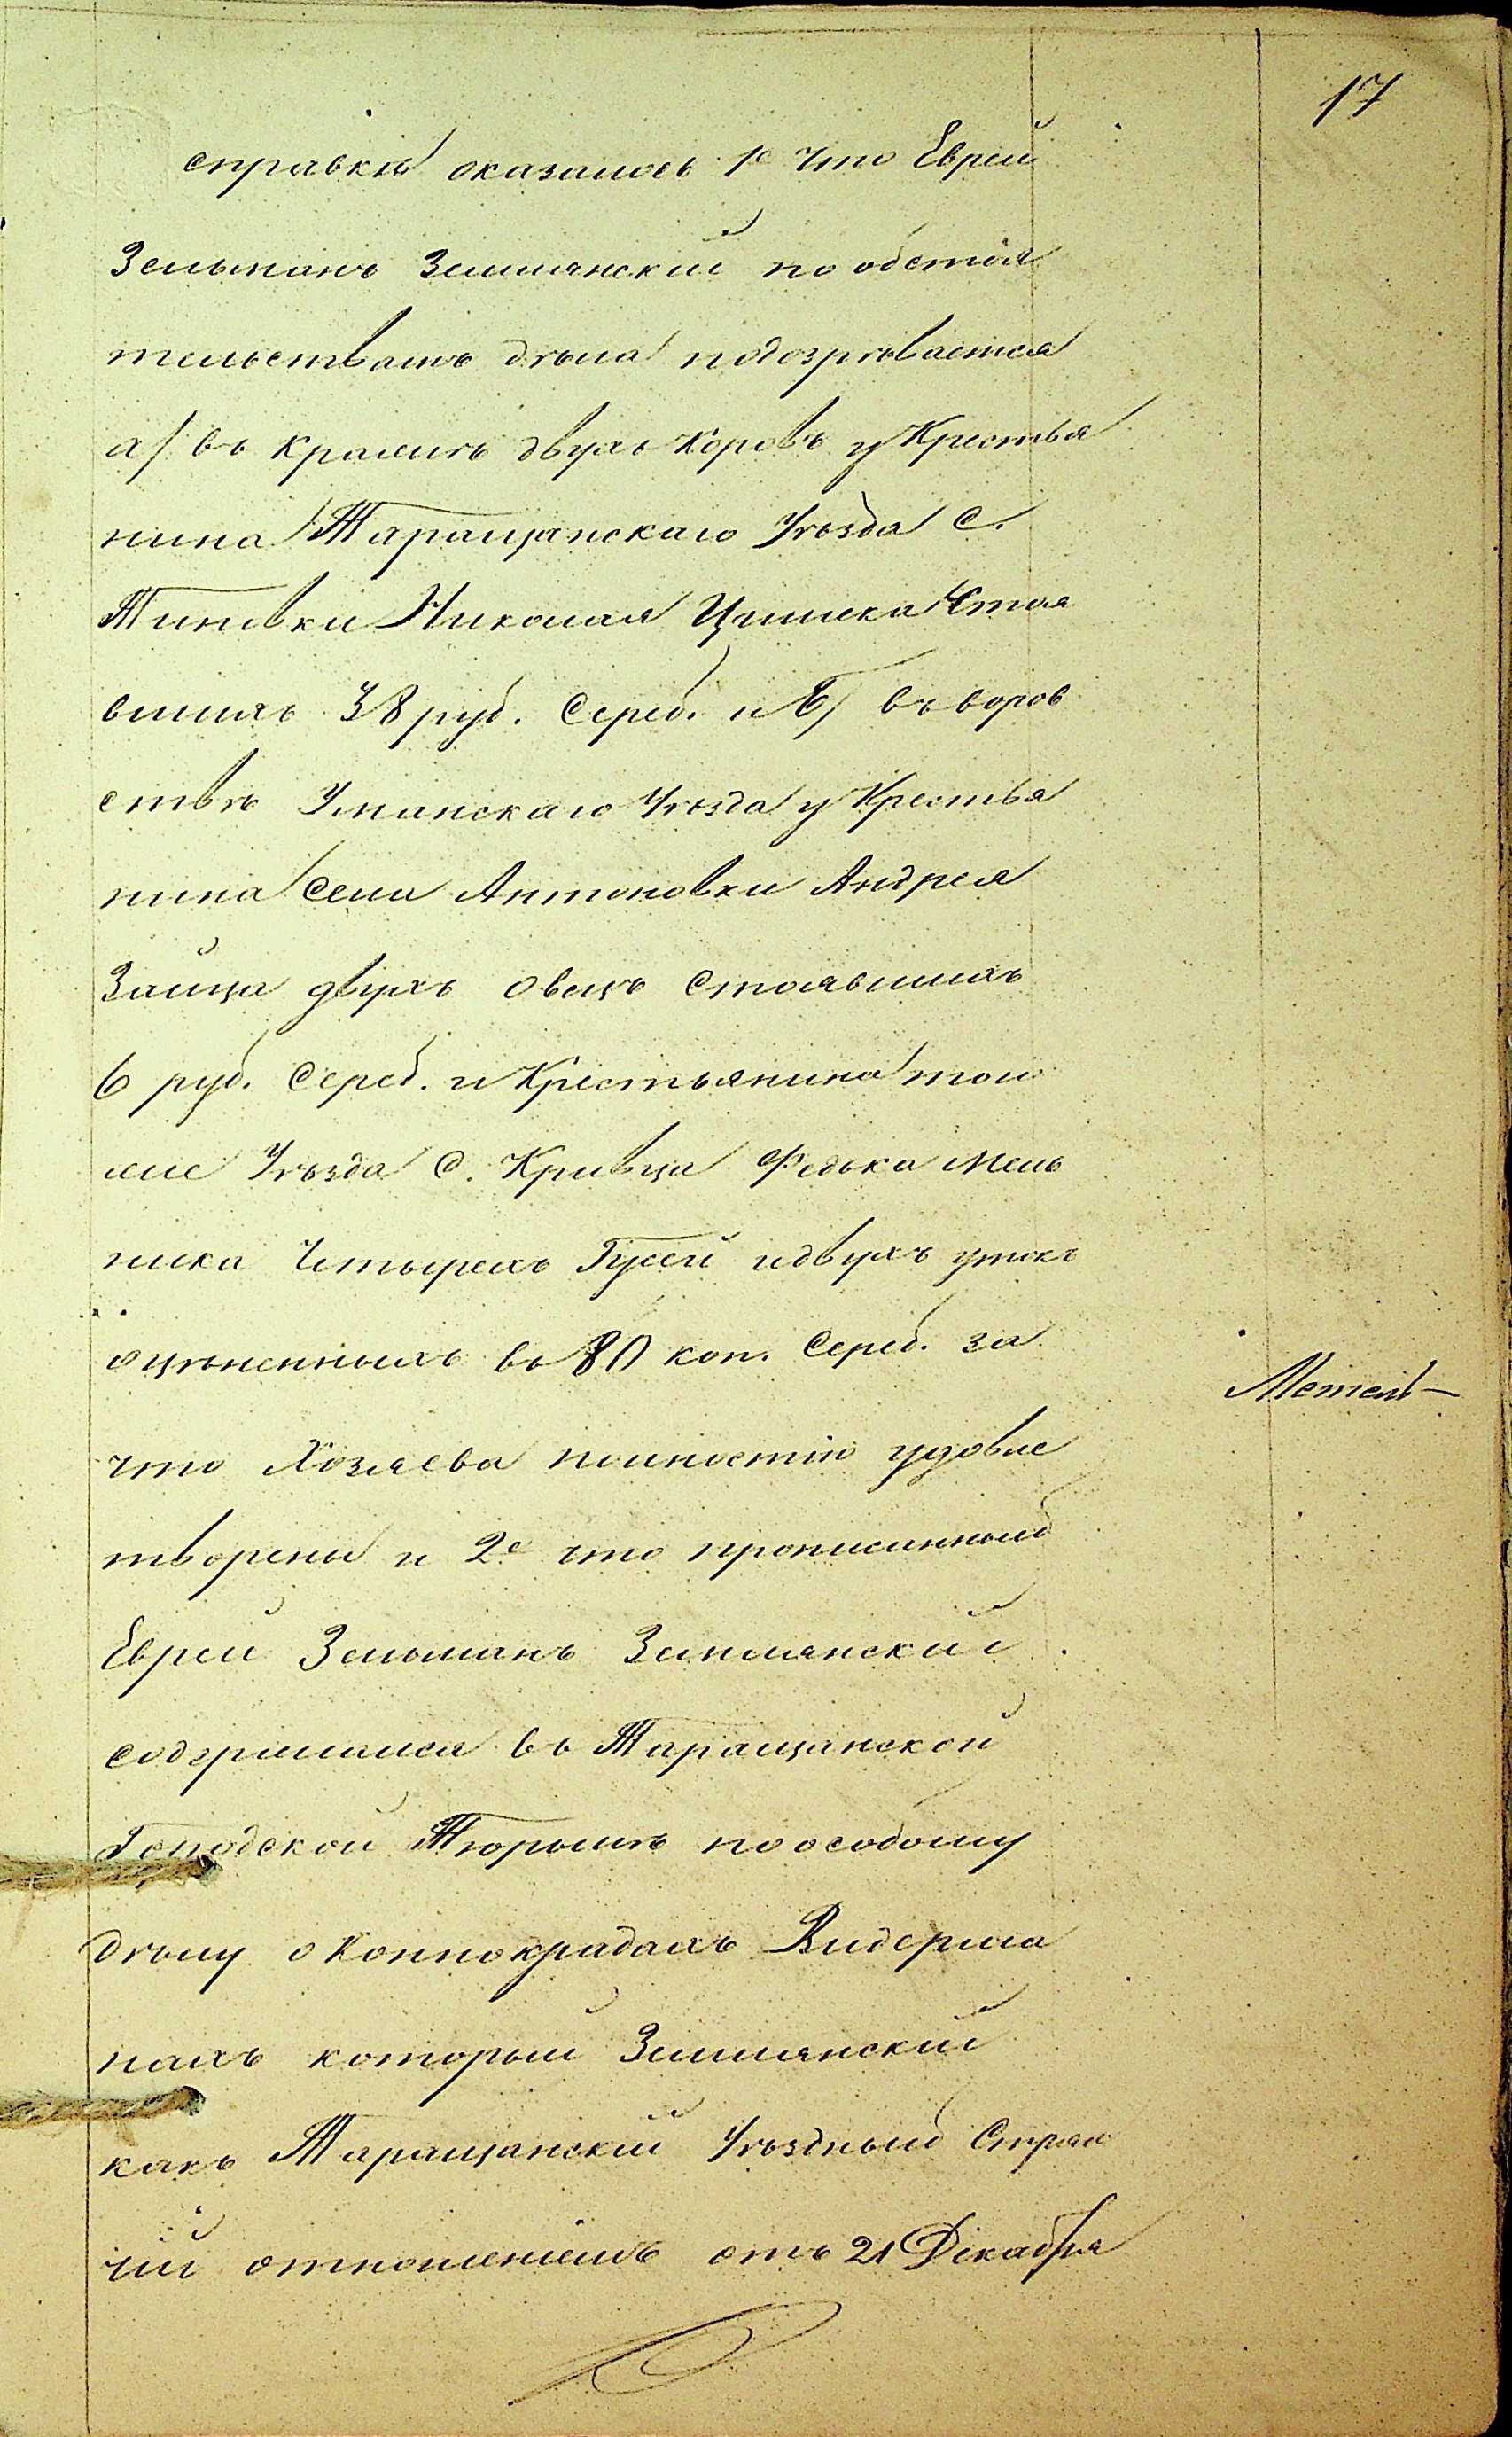 17
справки оказалось 1е что Еврей
Зельманъ Землянскій по обстоя
тельствамъ дѣла подозрѣвается
а/ въ кражѣ двухъ Коровъ у Крестья
нина Таращанскаго Уѣзда С.
Тиновки Николая Стоя
вшихъ 38 руб. Сереб. и б/ въ воров
ствѣ Уманскаго Уѣзда у Крестья
нина Села Антоновки Андрея
Зайца двухъ овецъ Стоявшихъ
6 руб. Сереб. и Крестьянина того
же Уѣзда С. Кривца Федька Мель
ника Четырехъ Гусей и двухъ утокъ
оцѣненныхъ въ 80 коп. Сереб. за
что Хозяева полностію удовле
творены и 2е что прописанный
Еврей Зельманъ Землянскій
содержался въ Таращанской
Городской Тюрьмѣ по особому
дѣлу о Коннокрадахъ Видерма
нахъ который Землянскій
какъ Таращанскій Уѣздный Стряп
чій отношеніемъ отъ 21 Декабря